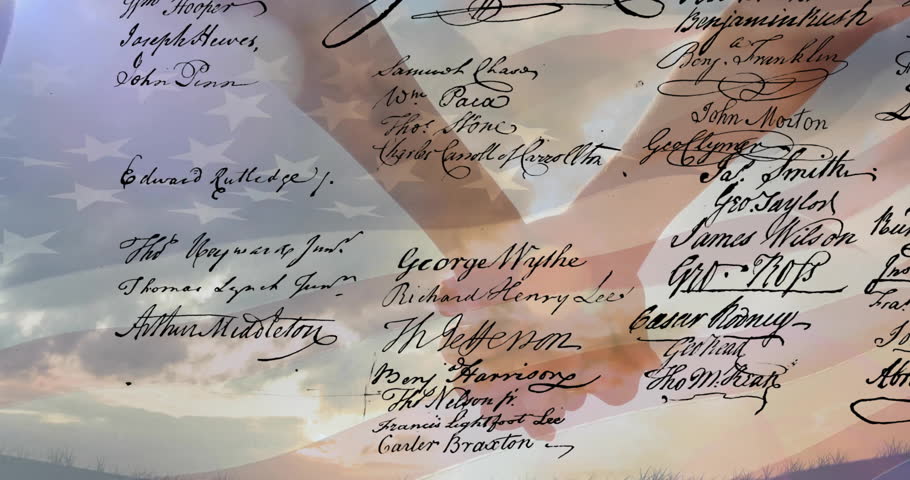 Wm Hooper
Joseph Hewes,
John Penn
Edward Rutledge /.
Thos Heyward Junr.
Thomas Lynch Junr.
Arthur Middleton
Samuel Chase
Wm. Paca
Thos. Stone
Charles Carroll of Carrollton
George Wythe
Richard Henry Lee
Th Jefferson
Benj Harrison
Thos Nelson jr.
Francis Lightfoot Lee
Carter Braxton
Benjamin Rush
Benj. Franklin
John Morton
Geo Clymer
Jas. Smith
Geo. Taylor
James Wilson
Geo. Ross
Caesar Rodney
Geo Read
Tho M:Kean